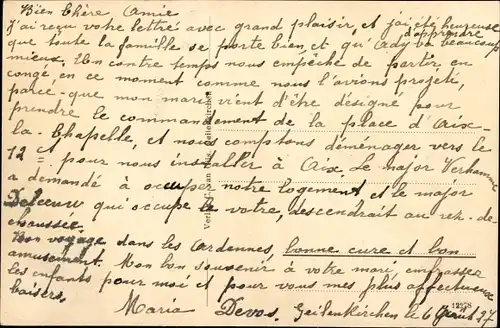 Bien Chère Amie
J'ai reçu votre lettre avec grand plaisir, et j'ai été heureuse d'apprendre
que toute la famille se porte bien, et qu'Ady va beaucoup
mieux. Un contre temps nous empêche de partir, en
congé, en ce moment comme nous l'avions projeté,
parce-que mon mari vient d'être désigné pour
prendre le commandement de la place d'Aix-
la-Chapelle, et nous comptons déménager vers le
12 ct pour nous installer à Aix. Le major Verhamme
a demandé à occuper notre logement et le major
Deleeuw qui occupe le vôtre, descendrait au rez-de-
chaussée.
Bon voyage dans les Ardennes, bonne cure et bon
amusement. Mon bon souvenir à votre mari, embrasser
les enfants pour moi et pour vous mes plus affectueux
baisers,
Maria Devos. Geilenkirchen le 6 27
12278